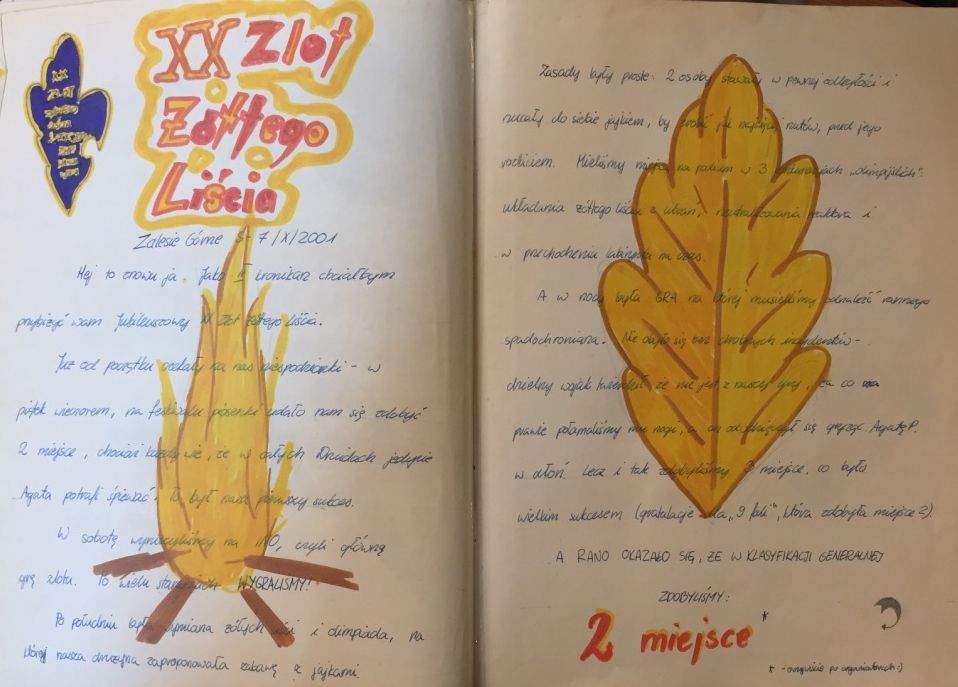 XX Zlot
Żółtego
Liścia
Zalesie Górne 5-7/X/2001
Hej to znowu ja. Jako II kronikarz chciałbym
przybliżyć wam Jubileuszowy XX Zlot Żółtego Liścia.
Już od początku czekały na nas niespodzianki - w
piątek wieczorem, na festiwalu piosenki udało nam się zdobyć
2 miejsce, chociaż każdy wie, że w całych Druidach jedynie
Agata potrafi śpiewać. To był nasz pierwszy sukces.
W sobotę wyruszyliśmy na INO, czyli główną
grę zlotu. To wielu staraniach WYGRALIŚMY!
Po południu była wymiana żółtych liści i olimpiada, na
której nasza drużyna zaproponowała zabawę z jajkami.
Zasady były proste: 2 osoby stawały w pewnej odległości i
rzucały do siebie jajkiem, by zrobić jak najwięcej rzutów, przed jego
rozbiciem. Mieliśmy miejsca na podium w 3 "olimpijskich":
układania żółtego liścia z ubrań, neutralizowania reaktora i
w przechodzeniu labiryntu na czas.
A w nocy była GRA na której musieliśmy odnaleźć rannego
spadochroniarza. Nie obyło się bez drobnych incydentów -
dzielny wojak twierdził że nie jest z naszej gry, za co
prawie połamaliśmy mu nogi, a on odwdzięczył się gryząc Agatę P.
w dłoń. Lecz i tak zdobyliśmy 3 miejsce, co było
wielkim sukcesem (gratulacje dla "9 fali", która zdobyła miejsce 2).
A RANO OKAZAŁO SIĘ, ŻE W KLASYFIKACJI GENERALNEJ
ZDOBYLIŚMY:
2 miejsce *
* - oczywiście po organizatorach :)